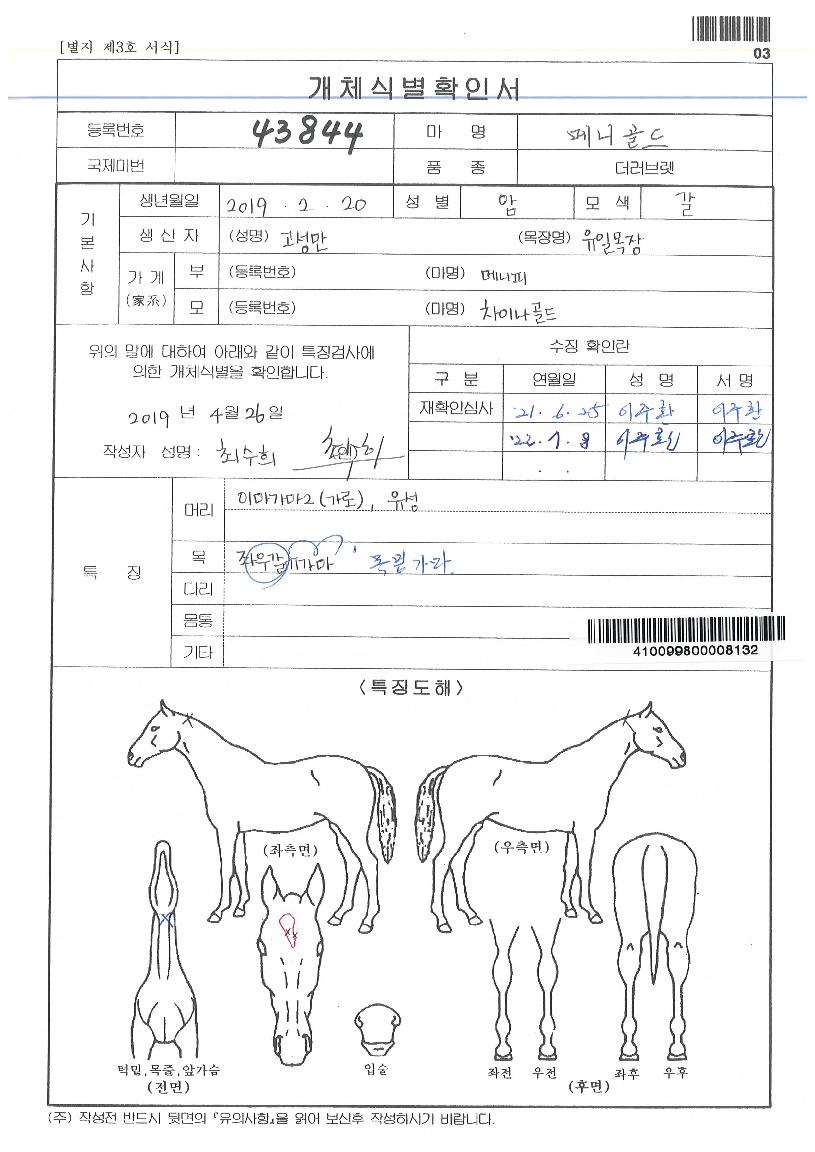 [별지 제3호 서식]
03
개체식별확인서
등록번호 43844 마 명 메니골드
국제마번 품 종 더러브렛
기본사항
생년월일 2019 . 2 . 20 성 별 암 모 색 갈
생 산 자 (성명) 고성만 (목장명) 유일목장
가 계 (家系) 부 (등록번호) (마명) 메니피
모 (등록번호) (마명) 차이나골드
위의 말에 대하여 아래와 같이 특징검사에
의한 개체식별을 확인합니다.
2019 년 4월 26일
작성자 성명 : 최수희
수정 확인란
구 분 연월일 성 명 서 명
재확인심사 '21. 6. 25 이주환 이주환
'22. 7. 8
. .
특 징
머리 이마가마2(가로), 유성
목 좌우갈기가마
다리
몸통
기타
410099800008132
<특징도해>
(좌측면) (우측면)
턱밑,목줄,앞가슴
(전면)
입술
좌전 우전 좌후 우후
(후면)
(주) 작성전 반드시 뒷면의 『유의사항』을 읽어 보신후 작성하시기 바랍니다.